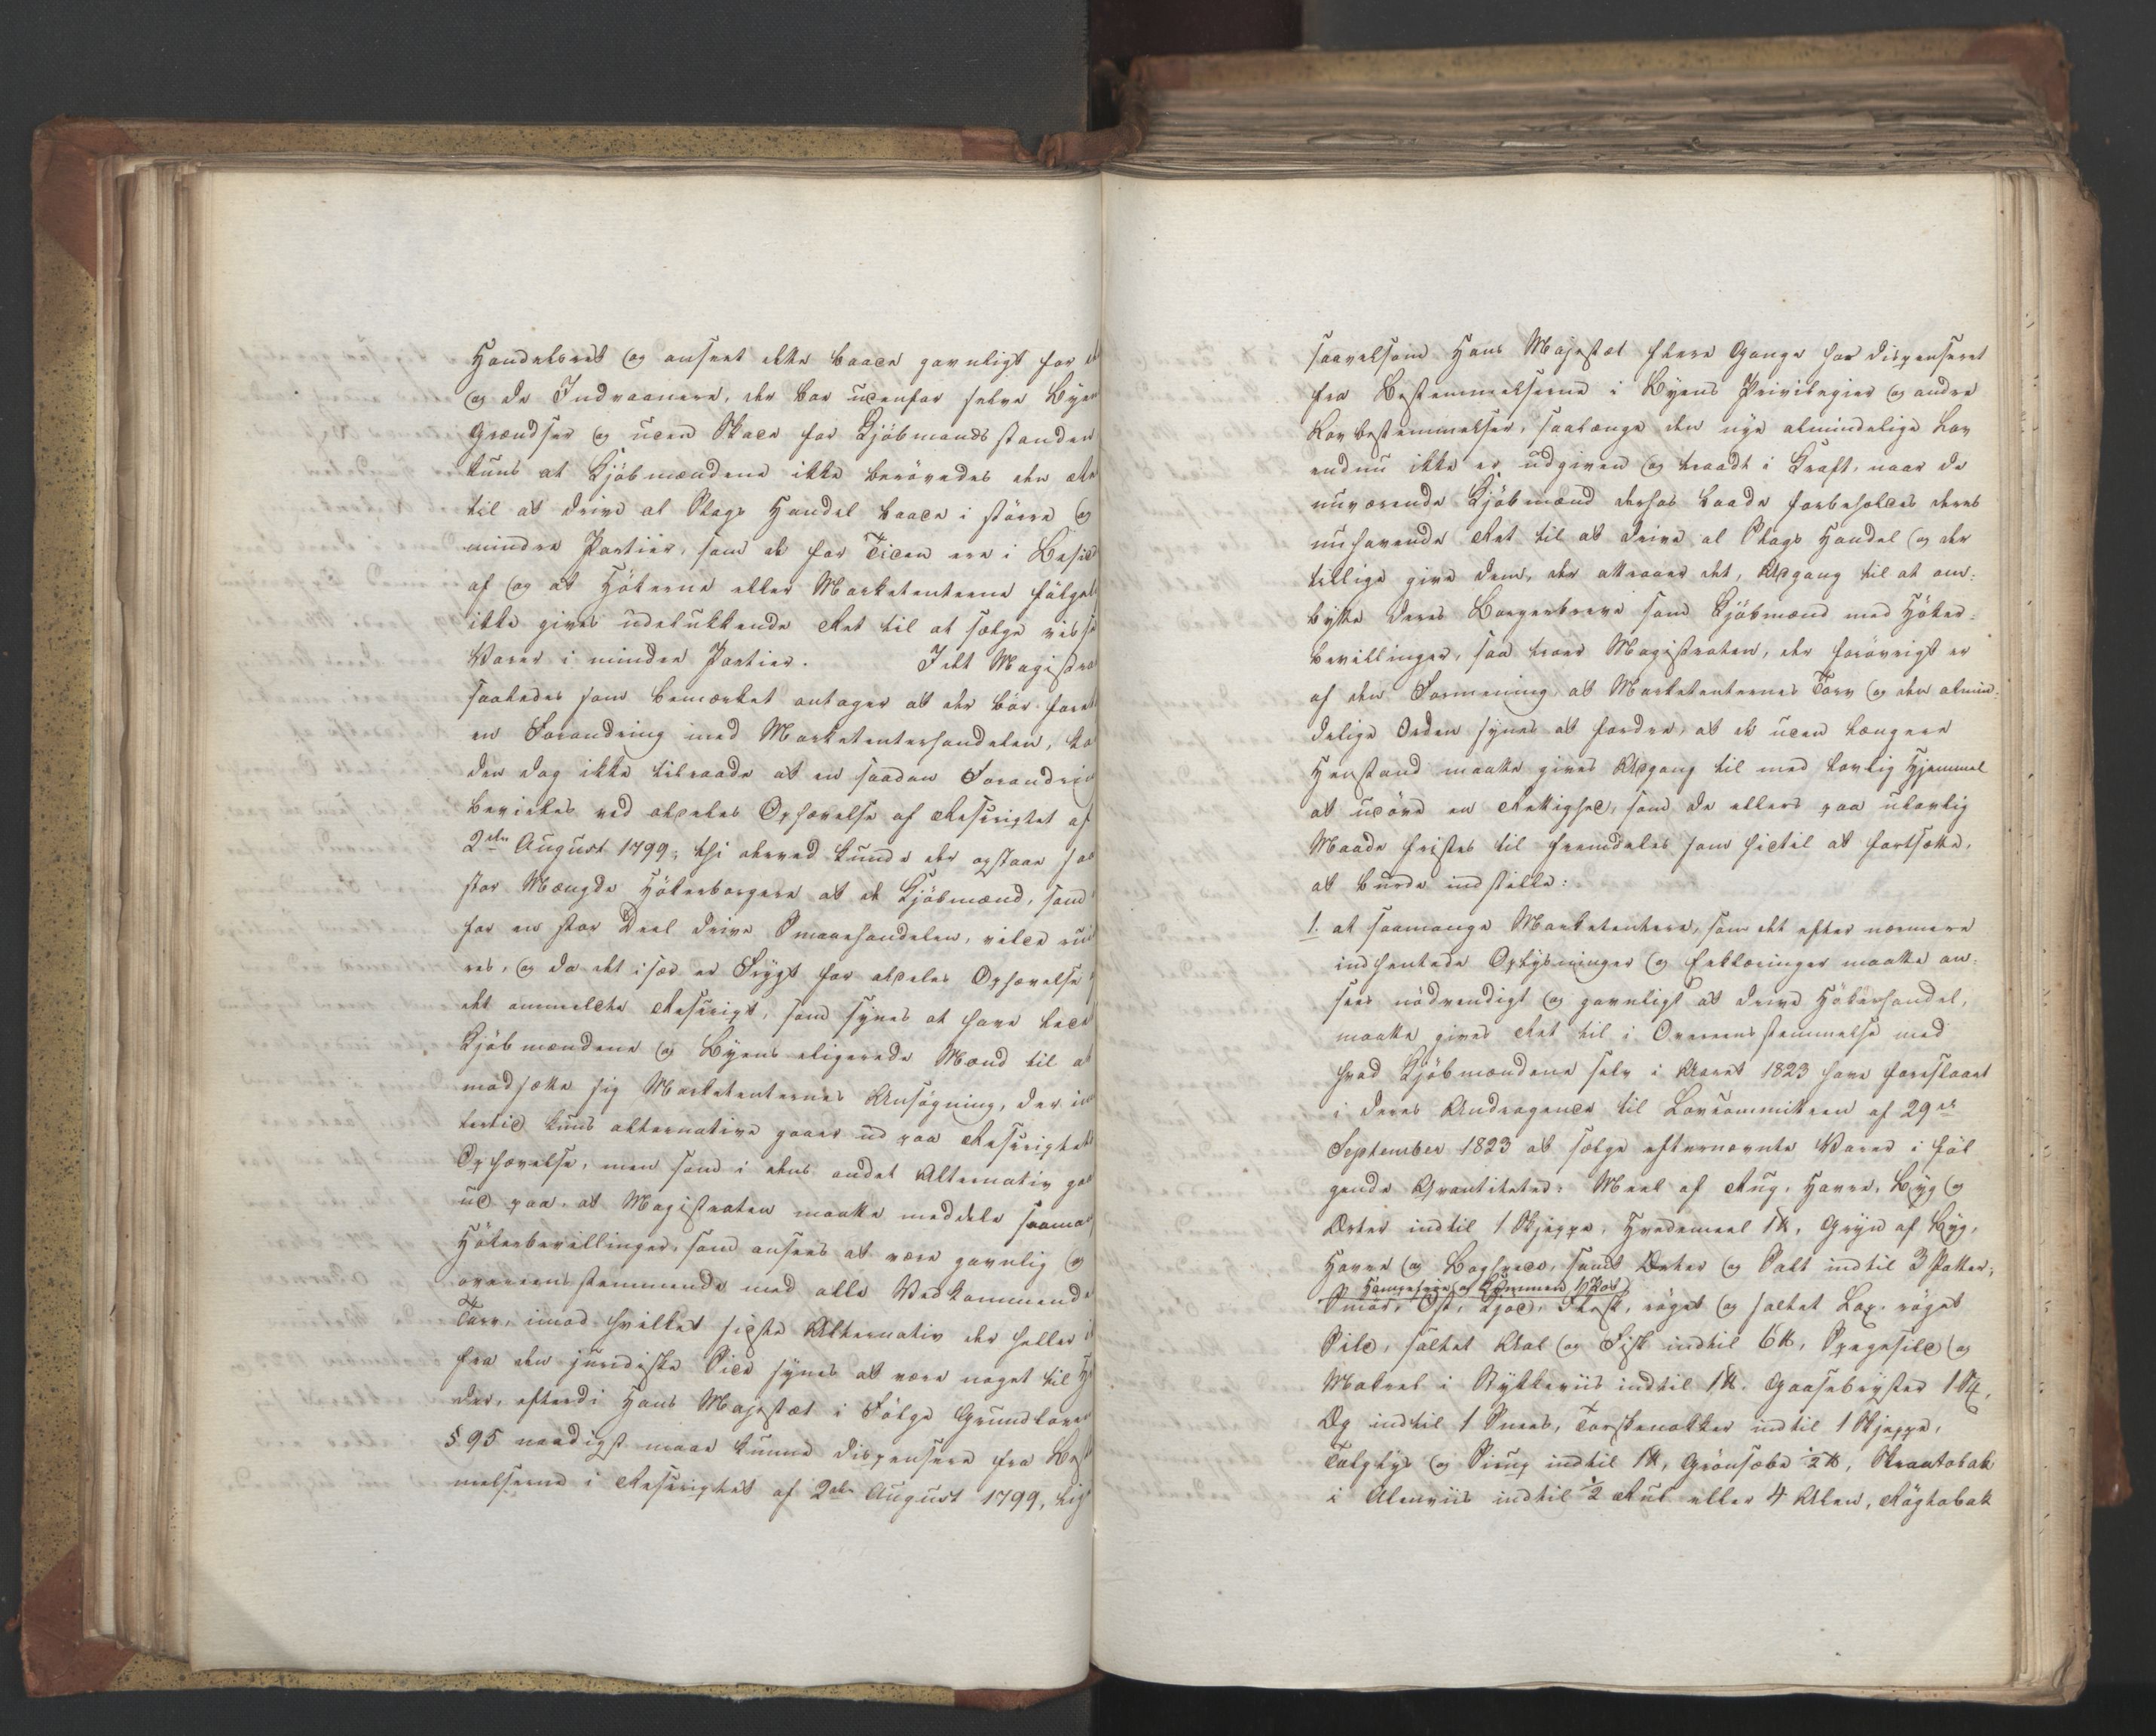 Handelsret og anseet dette baade gavnligt for
og de Indvaanere, der boe udenfor selve Byens
Grændser og uden Skade for Kjöbmandsstanden
kuns at Kjöbmændene ikke berövedes den Ret
til at drive al Slags Handel baade i större og
mindre Partier, som de for Tiden ere i Besid
af og at Hökerne eller Marketenterne fölgel
ikke gives udelukkende Ret til at sælge visse
Varer i mindre Partier. Idet Magistra
saaledes som bemærket antager at der bör foret
en Forandring med Marketenterhandelen,
den dog ikke tilraade at en saadan Forandrin
bevirkes ved aldeles Ophævelse af Rescriptet af
2den August 1799, thi derved kunde der opstaae saa
stor Mængde Hökerborgere at de Kjöbmænd, som
for en stor Deel drive Smaahandelen, vilde rui
res, og da det især er Frygt for aldeles Ophævelse
det anmeldte Rescript, som synes at have ledet
Kjöbmændene og Byens eligerede Mænd til at
modsætte sig Marketenternes Ansögning, der im
lertid kuns alternative gaaer ud paa Rescriptets
Ophævelse, men som i dens andet Alternativ gaa
ud paa, at Magistraten maatte meddele saamange
Hökerbevillinger, som ansees at være gavnlig og
overeensstemmende med alle Vedkommende
Tarv, imod hvilket sidste Alternativ der heller i
fra den juridiske Side synes at være noget til H
der, efterdi Hans Majestæt i Fölge Grundloven
§ 95 naadigst maae kunne dispensere fra Best
melserne i Rescriptet af 2den August 1799, lige
saavelsom Hans Majestæt flere Gange har dispenseret
fra Bestemmelserne i Byens Privilegier og andre
Lovbestemmelser, saalænge den nye almindelige Lov
endnu ikke er udgiven og traadt i Kraft, naar de
nuværende Kjöbmænd derhos baade forbeholdes deres
nuhavende Ret til at drive al Slags Handel og der
tillige gives dem, der attraaer det, Adgang til at om-
bytte deres Borgerbreve som Kjöbmænd med Höker-
bevillinger, saa troer Magistraten, der forövrigt er
af den Formening at Marketenternes Tarv og den almin-
delige Orden synes at fordre, at de uden længere
Henstand maatte gives Adgang til med lovlig Hjemmel
at udöve en Rettighed, som de ellers paa ulovlig
Maade fristes til fremdeles som hidtil at fortsætte,
at burde indstille:
1. at saamange Marketentere, som det efter nærmere
indhentede Oplysninger og Erklæringer maatte an-
sees nödvendigt og gavnligt at drive Hökerhandel,
maatte gives Ret til i Overeensstemmelse med
hvad Kjöbmændene selv i Aaret 1823 have foreslaaet
i deres Andragende til Lovcommitteen af 29de
September 1823 at sælge efternævnte Varer i föl
gende Qvantiteter: Meel af Rug, Havre, Byg og
Erter indtil 1 Skjeppe, Hvedemeel 1 ℔, Gryn af Byg,
Havre og Boghvede, samt Erter og Salt indtil 3 Potter,
Hampefröe og Kummen 1/2 Pot
Smör, Ost, Kjöd, Flesk, röget og saltet Lax, röget
Sild, saltet Aal og Fisk indtil 6 ℔, Spegesild og
Makrel i Stykkeviis indtil 1 ℔, Gaasebryster 1 St,
Æg indtil 1 Snees, Torskenakker indtil 1 Skjeppe,
Talglys og Sirup indtil 1 ℔, Grönsæbe 1/2 ℔, Skraatobak
i Alenviis indtil 1/2 Rul eller 4 Alen, Rögtobak